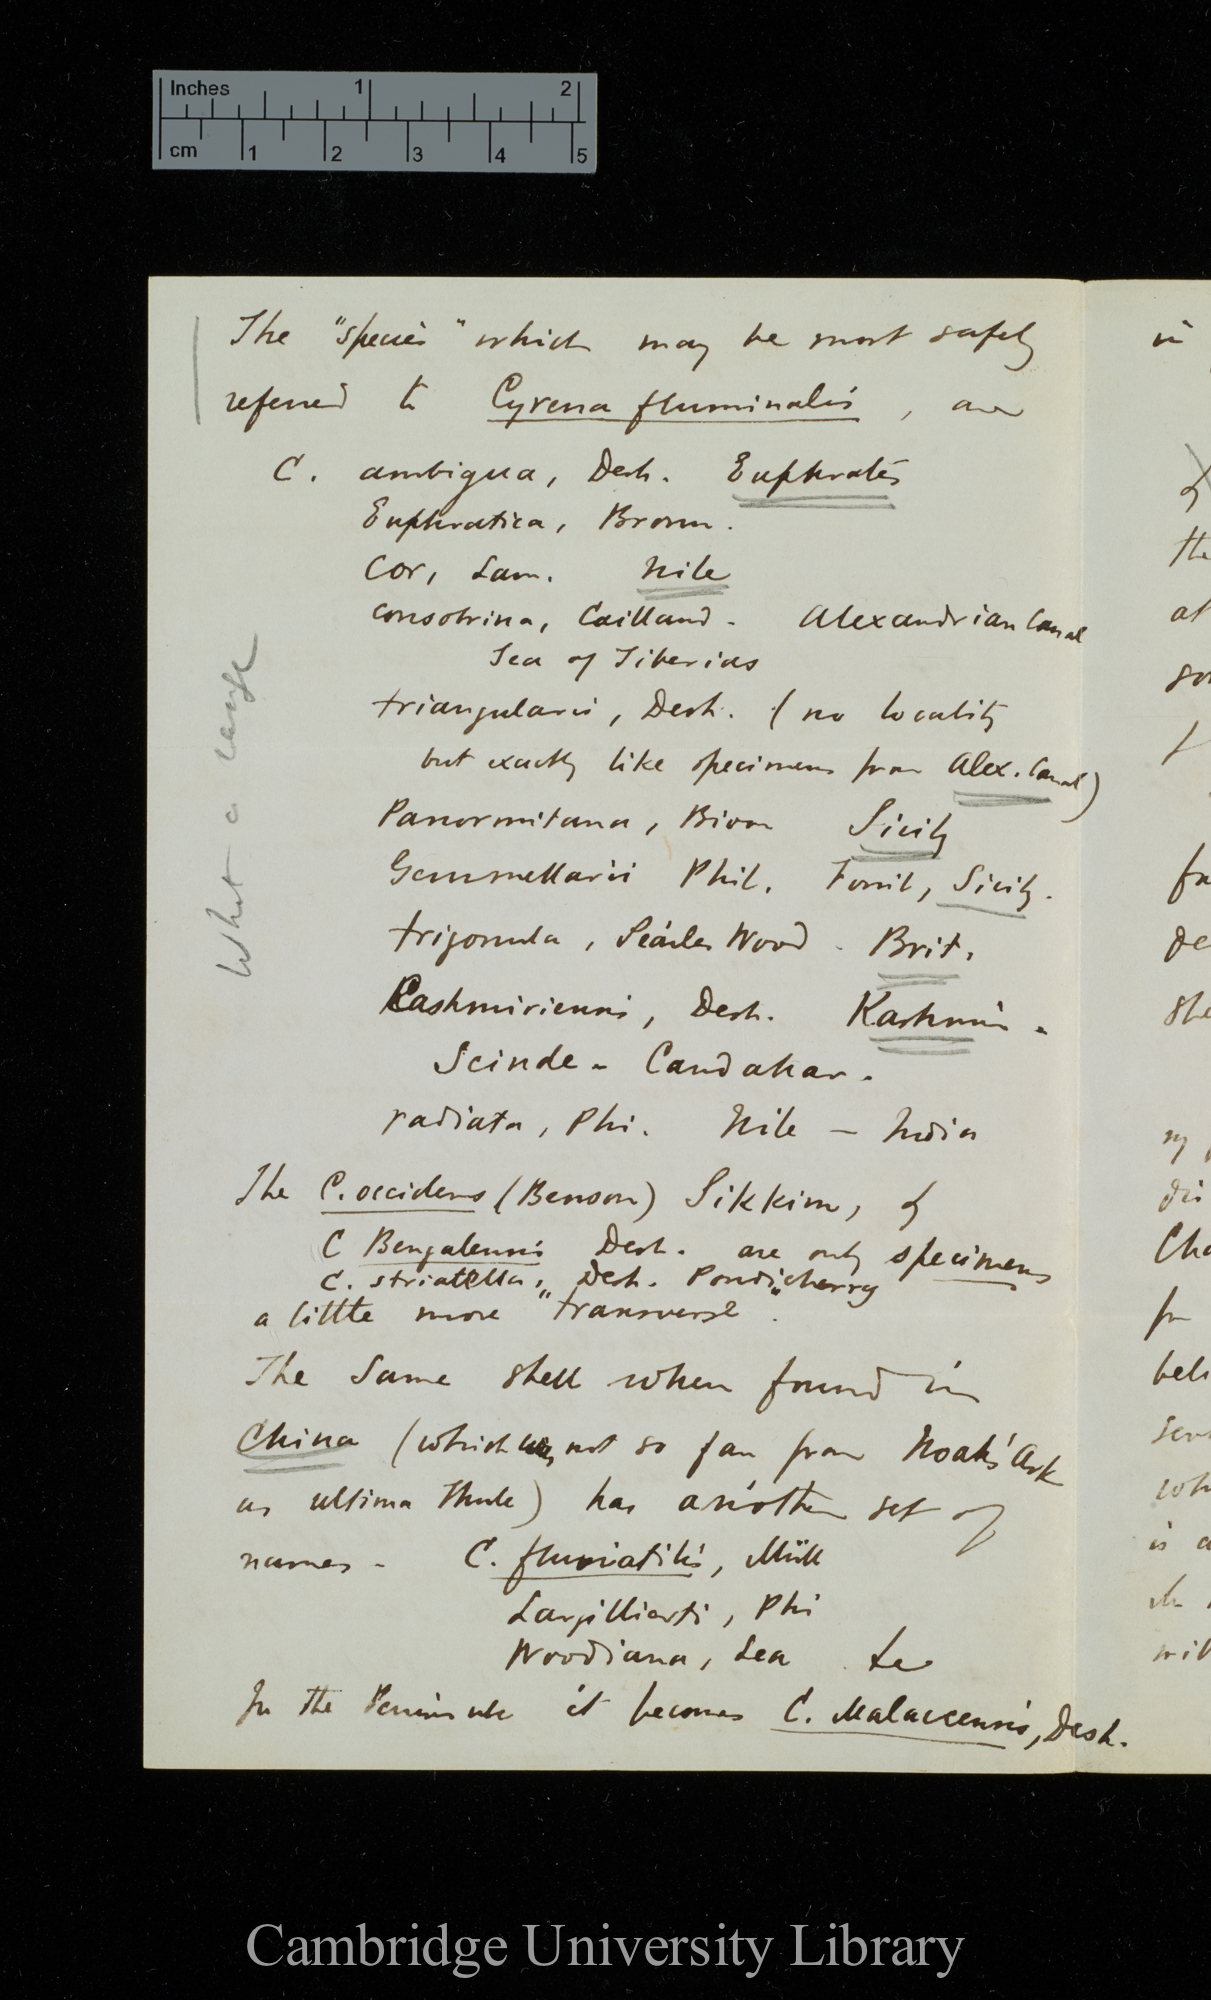 Inches 1 2
cm 1 2 3 4 5
The "species" which may be most safely
referred to Cyrena fluminalis, are
C. ambigua, Desh. Euphrates
Euphratica, Bronn.
Cor, Lam. Nile
consobrina, Cailland. Alexandrian Canal
Sea of Tiberias
triangularis, Desh. (no locality
but exactly like specimens from Alex. Canal)
Panormitana, Bivon Sicily
Gemmellarii Phil. Fossil, Sicily.
trigonula, Searles Wood. Brit.
Cashmiriensis, Desh. Kashmir.
Scinde - Candahar.
radiata, Phi. Nile - India
What a range
The C. occidens (Benson) Sikkim, &
C Bengalensis Desh. are only specimens
C. striatella, Desh. Pondicherry
a little more "transverse".
The same shell when found in
China (which is not so far from Noah's Ark
as ultima Thule) has another set of
names - C. fluviatilis, Müll
Largillierti, Phi
Woodiana, Lea &c
In the Peninsula it becomes C. Malaccensis, Desh.
in
the
at
Cambridge University Library